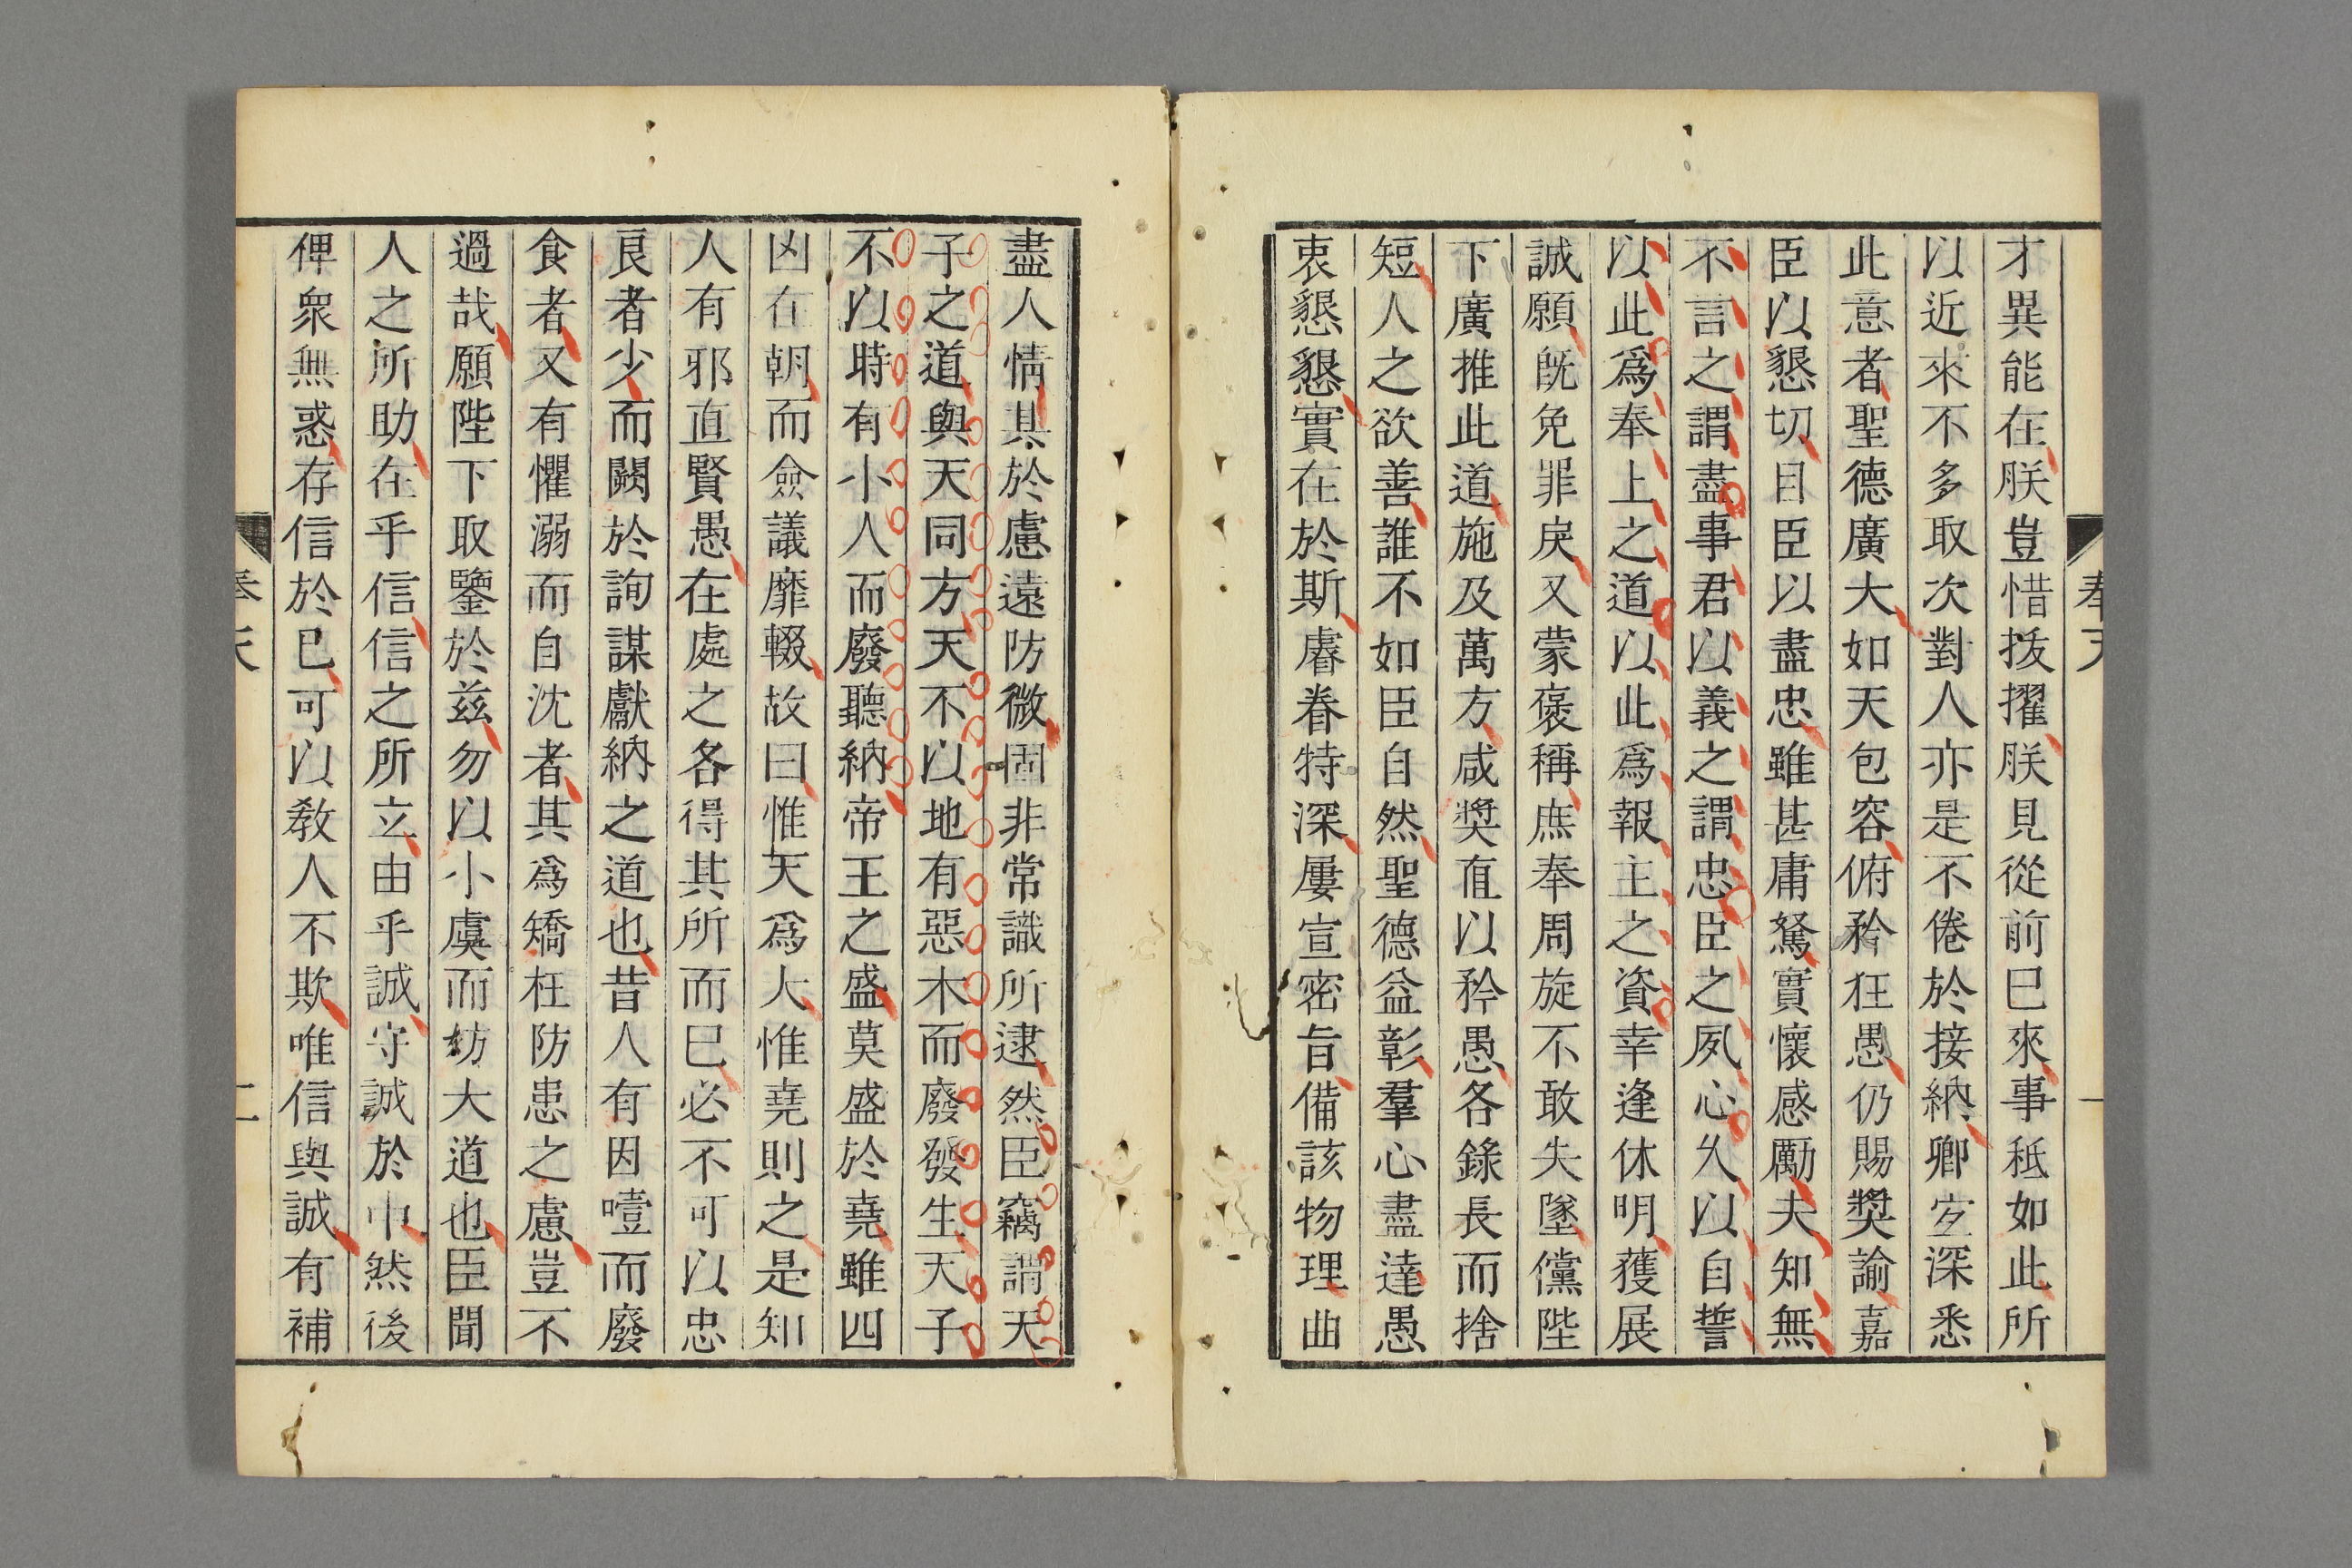 才異能在朕豈惜拔擢朕見從前巳來事秪如此所
以近來不多取次對人亦是不倦於接納卿宜深悉
此意者聖德廣大如天包容俯矜狂愚仍賜奬諭嘉
臣以懇切目臣以盡忠雖甚庸駑實懷感勵夫知無
不言之謂盡事君以義之謂忠臣之夙心久以自誓
以此爲奉上之道以此爲報主之資幸逢休明獲展
誠願旣免罪戾又蒙褒稱庶奉周旋不敢失墜儻陛
下廣推此道施及萬方咸奬直以矜愚各錄長而捨
短人之欲善誰不如臣自然聖德益彰羣心盡達愚
衷懇懇實在於斯睿眷特深屢宣密旨備該物理曲
盡人情其於慮遠防微固非常識所逮然臣竊謂天
子之道與天同方天不以地有惡木而廢發生天子
不以時有小人而廢聽納帝王之盛莫盛於堯雖四
凶在朝而僉議靡輟故曰惟天爲大惟堯則之是知
人有邪直賢愚在處之各得其所而巳必不可以忠
良者少而闕於詢謀獻納之道也昔人有因噎而廢
食者又有懼溺而自沈者其爲矯枉防患之慮豈不
過哉願陛下取鑒於兹勿以小虞而妨大道也臣聞
人之所助在乎信信之所立由乎誠守誠於中然後
俾衆無惑存信於巳可以敎人不欺唯信與誠有補
奉天
一
奉天
二